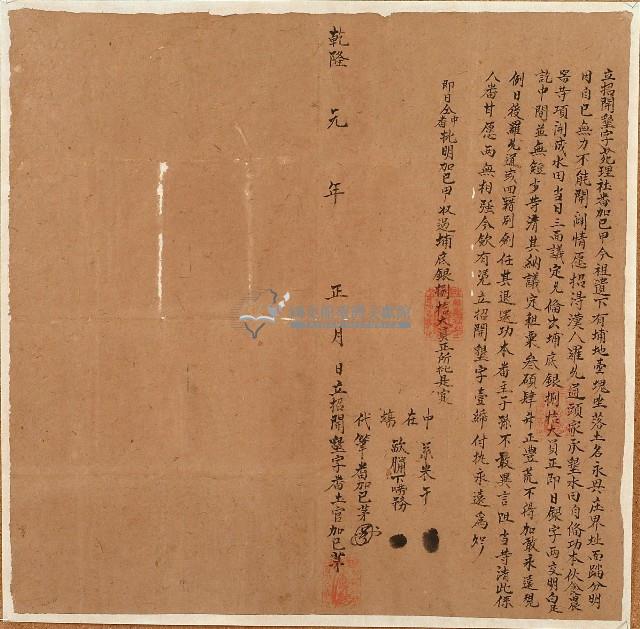 立招開墾字苑理社番加巳甲今祖遺下有埔地壹塊坐落土名永興庄界址面踏分明
因自己無力不能開闢情愿招得漢人羅允道頭家承墾水田自俻功本伙食農
器等項開成水田當日三面議定允俻出埔底銀捌拾大員正即日銀字兩交明白足
訖中間並無短少等清其納議定租粟叁碩肆斗正豐荒不得加減永遠覓
例日後羅允道或回籍別創任其退還功本番主子孫不敢異言阻當等清此係
人番甘愿兩無相强今欲有凭立招開墾字壹紙付执永遠為炤
即日仝中番批明加巳甲收過埔底銀捌拾大員正所批是寔
中
在
塲
代筆番加巳茅
乾隆元年 正月 日立招開墾字番土官加巳茅